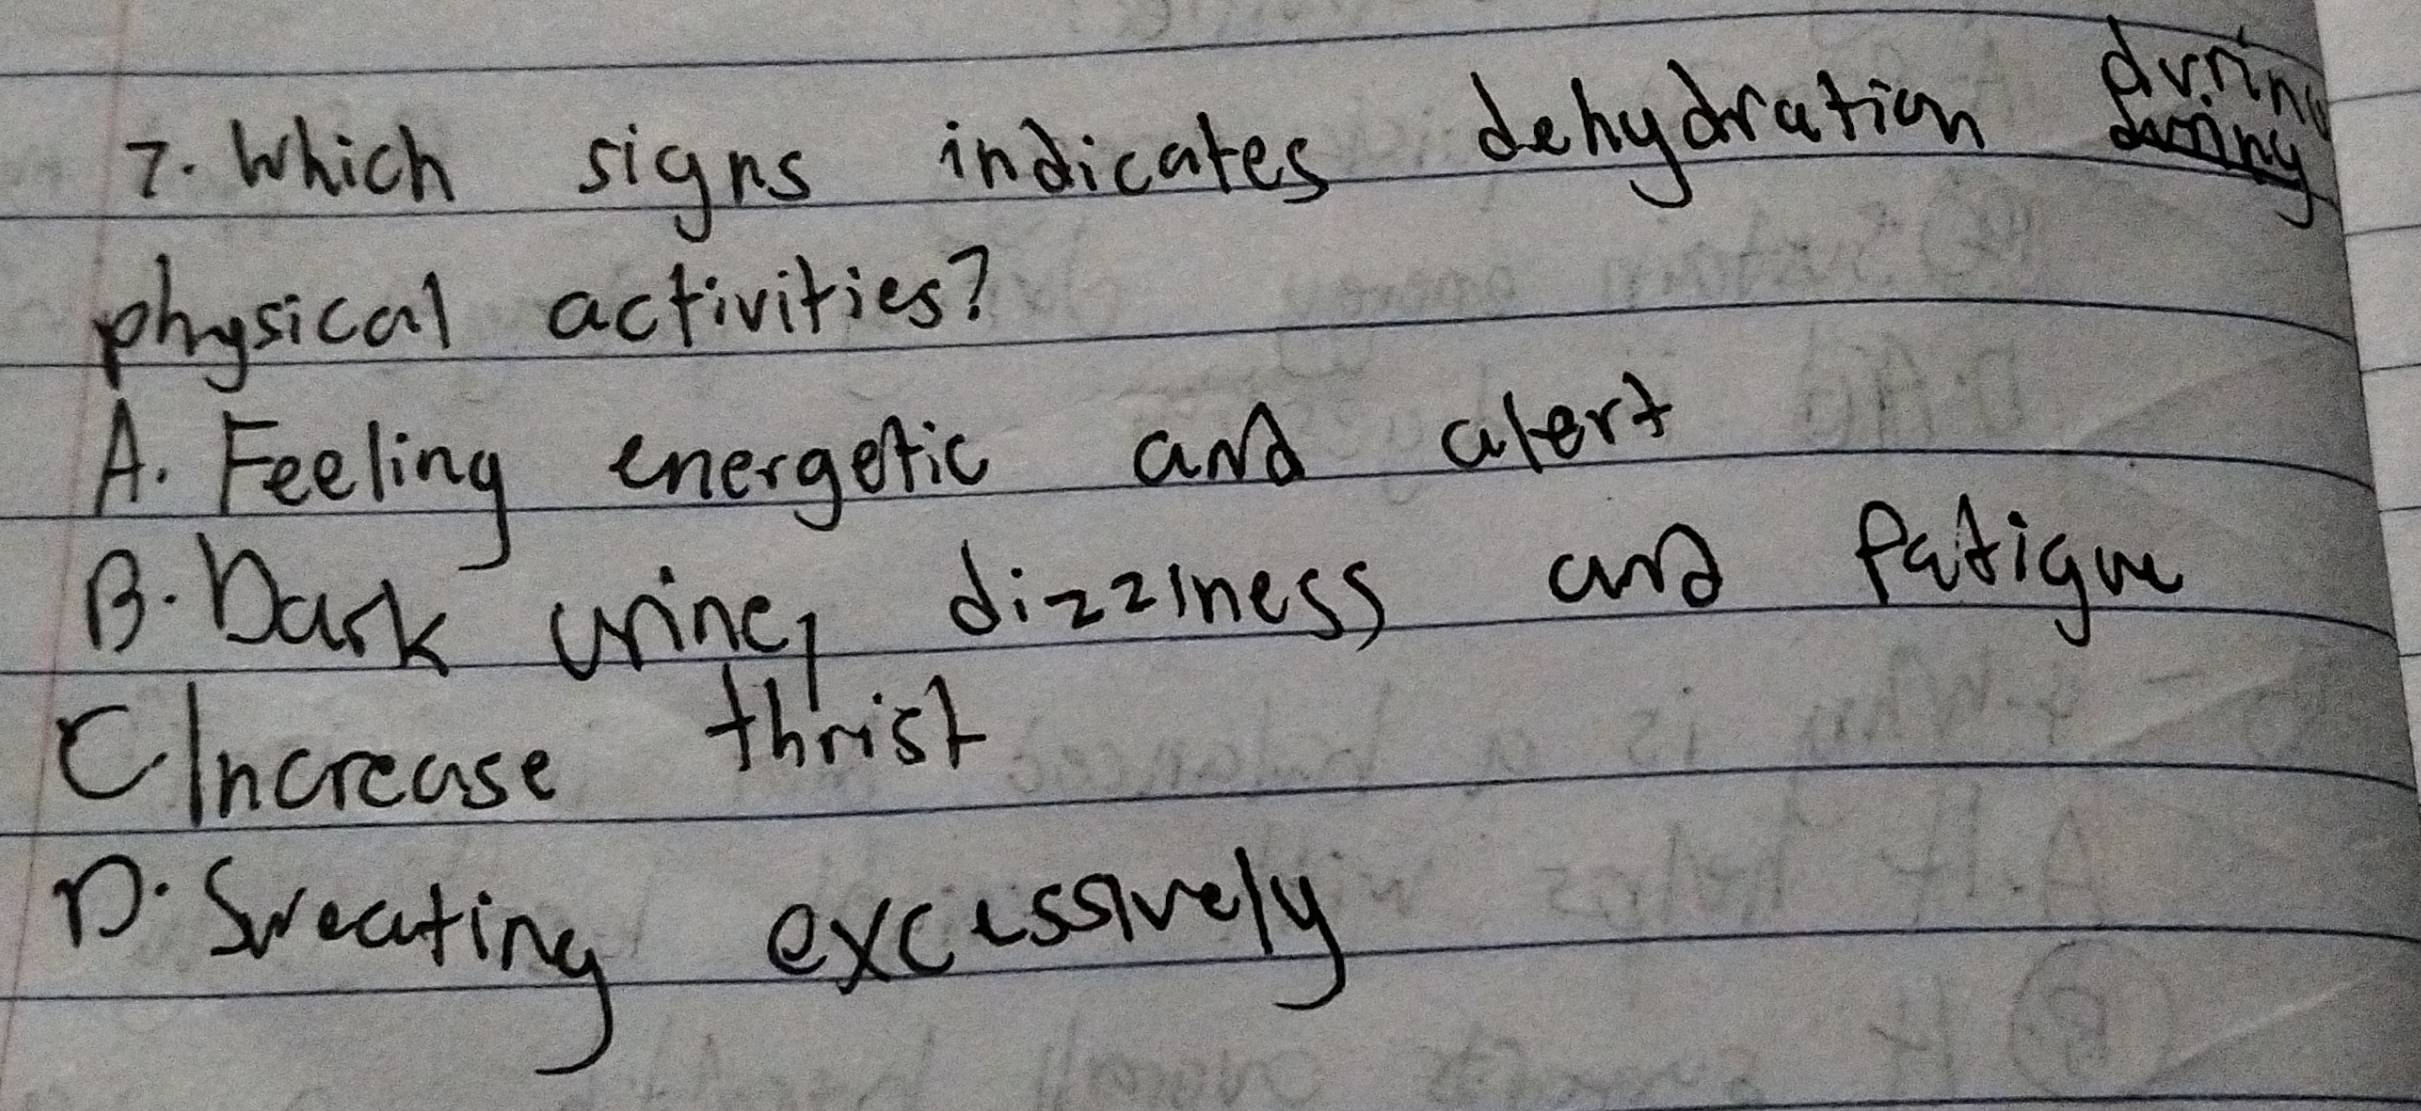 7. Which signs indicates dehydration during
physical activities?
A. Feeling energetic and alert
B. Dark urine, dizziness and fatigue
C Increase thrist
D. Sweating excessively